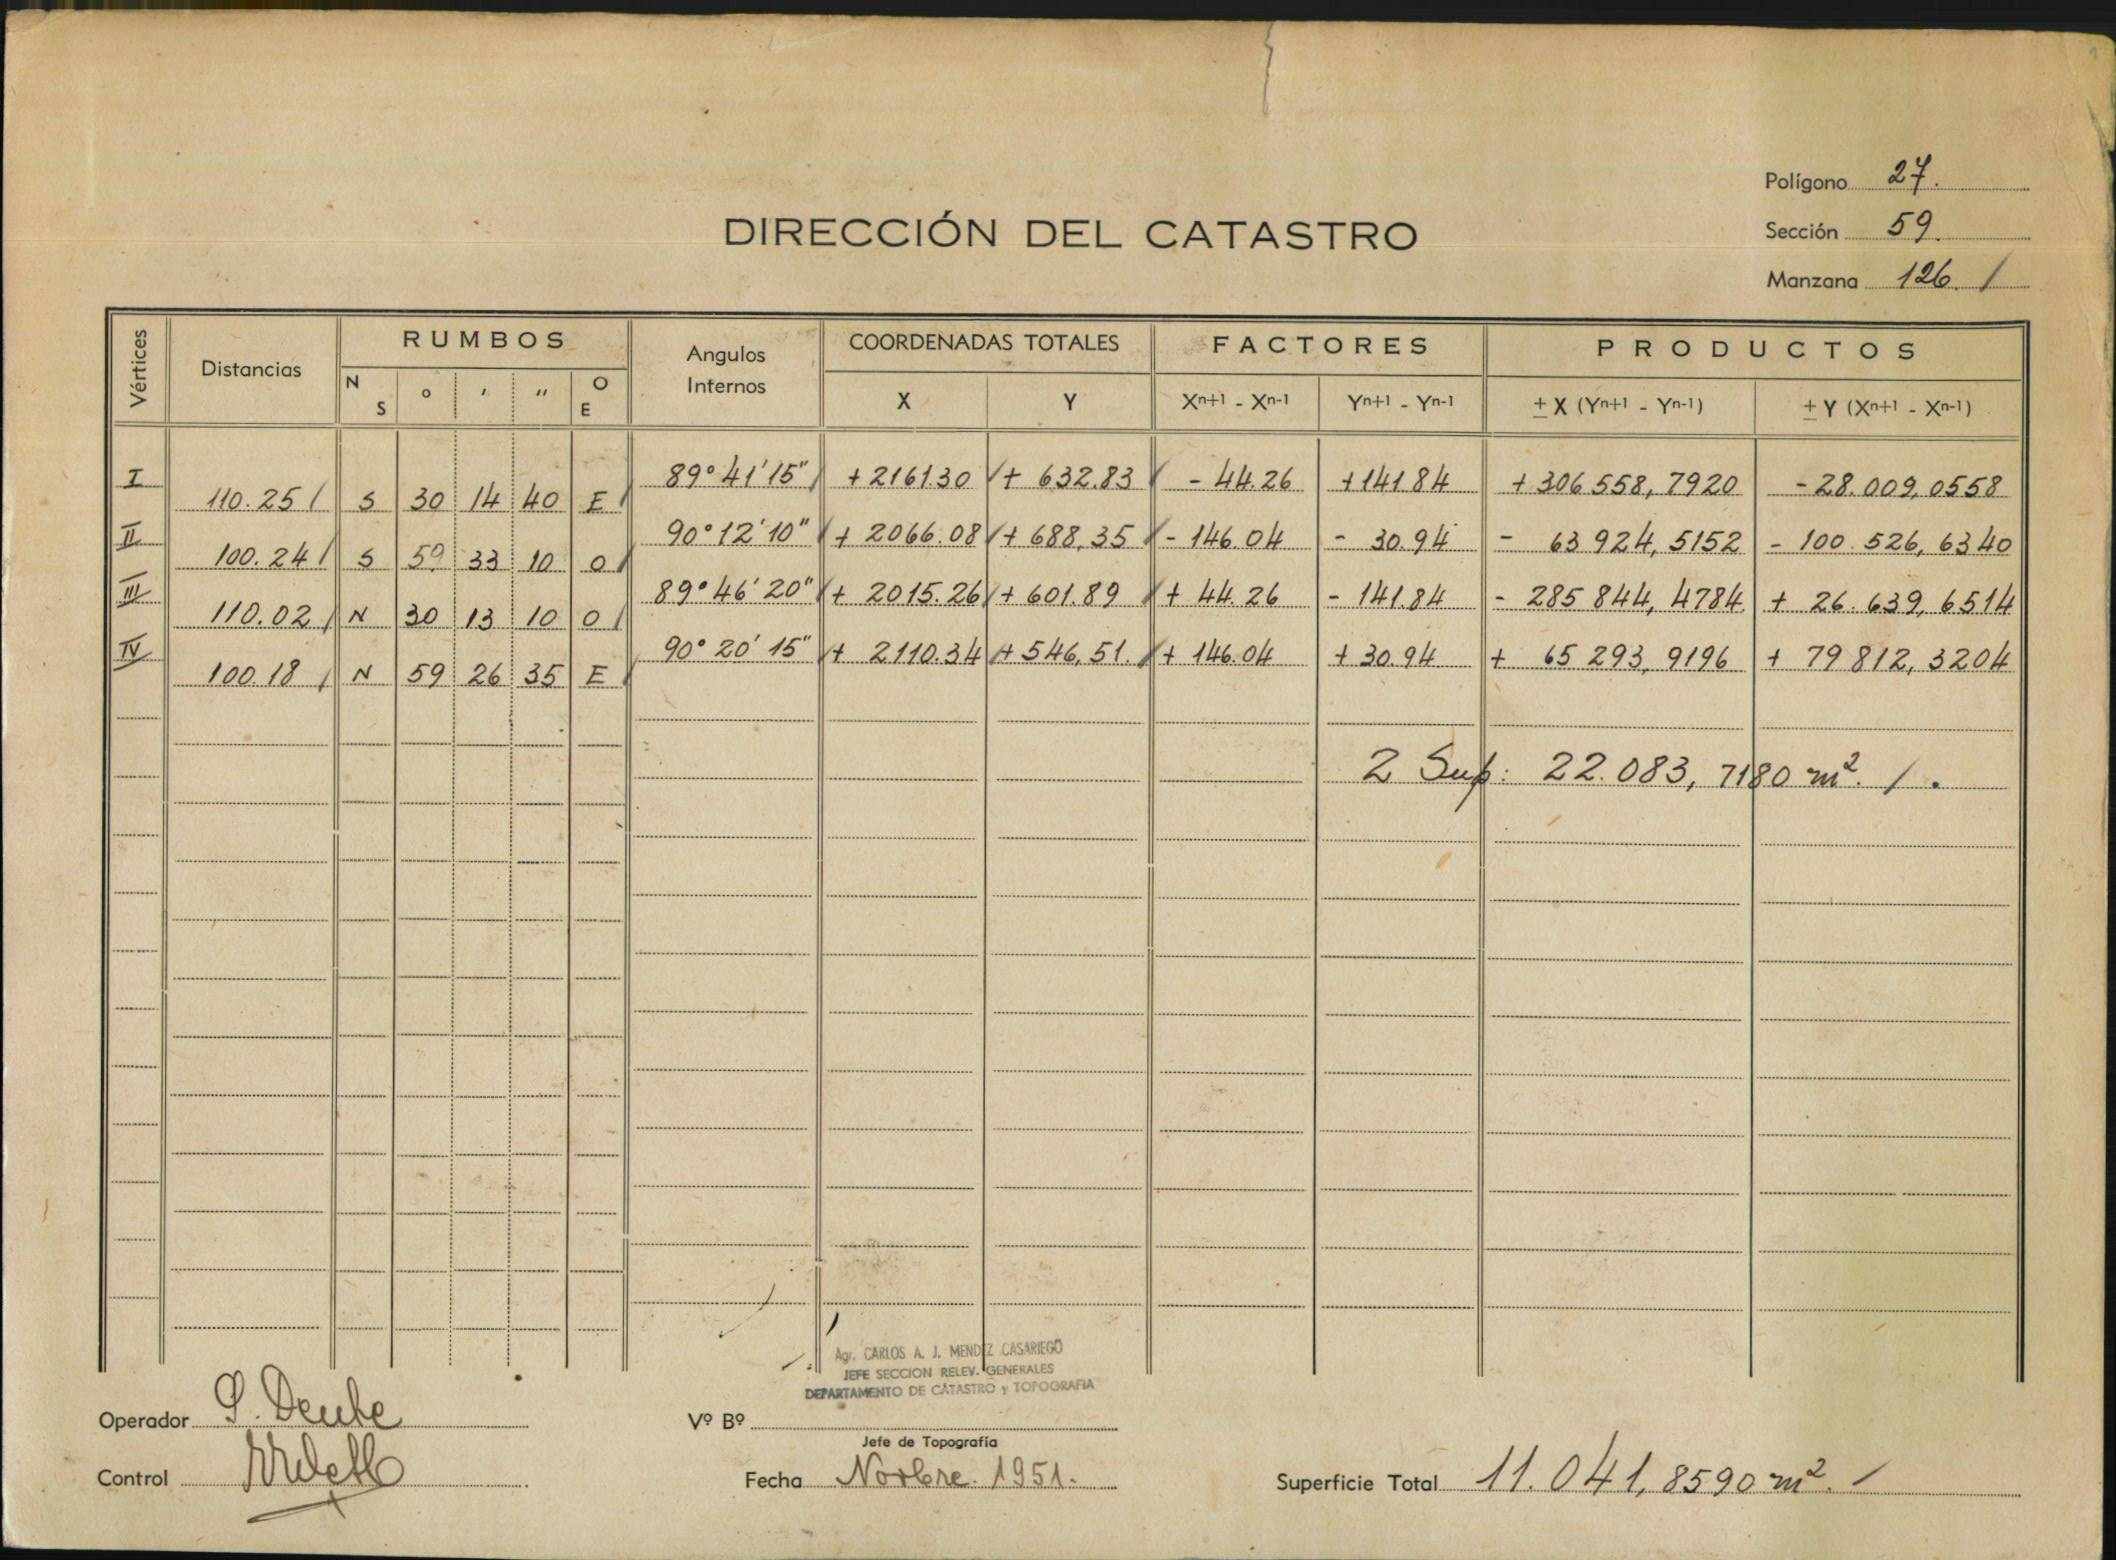 Polígono 27.
DIRECCIÓN DEL CATASTRO
Sección 59.
Manzana 126. /
Vértices Distancias RUMBOS Angulos Internos COORDENADAS TOTALES FACTORES PRODUCTOS
N S ° ' " O E X Y Xn+1 - Xn-1 Yn+1 - Yn-1 ± X (Yn+1 - Yn-1) ± Y (Xn+1 - Xn-1)
I 89° 41' 15" / + 2161.30 / + 632.83 / - 44.26 + 141.84 + 306 558, 7920 - 28.009, 0558
110.25 / S 30 14 40 E /
II 90° 12' 10" / + 2066.08 / + 688,35 / - 146.04 - 30.94 - 63 924, 5152 - 100.526, 6340
100.24 / S 59 33 10 O /
III 89° 46' 20" / + 2015.26 / + 601.89 / + 44.26 - 141.84 - 285 844, 4784 + 26.639, 6514
110.02 / N 30 13 10 O /
IV 90° 20' 15" / + 2110.34 / + 546,51. / + 146.04 + 30.94 + 65 293, 9196 + 79 812, 3204
100.18 / N 59 26 35 E /
2 Sup: 22.083, 7180 m². / .
Agr. CARLOS A. J. MENDEZ CASARIEGO
JEFE SECCION RELEV. GENERALES
DEPARTAMENTO DE CATASTRO y TOPOGRAFIA
Operador
Vº Bº
Jefe de Topografía
Control
Fecha Novbre. 1951.
Superficie Total 11.041, 8590 m². /